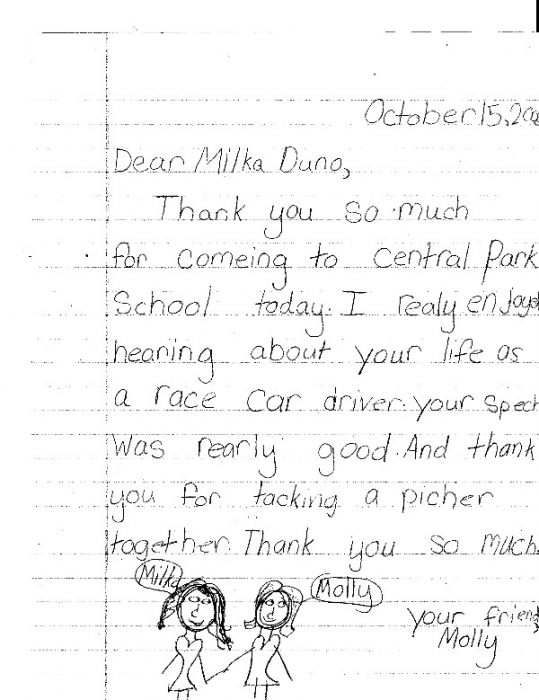 October 15, 20
Dear Milka Duno,
Thank you so much
for comeing to Central Park
School today. I realy enjoyd
hearing about your life as
a race car driver. your spech
was nearly good. And thank
you for tacking a picher
together. Thank you so much.
Milka
Molly
your friend
Molly